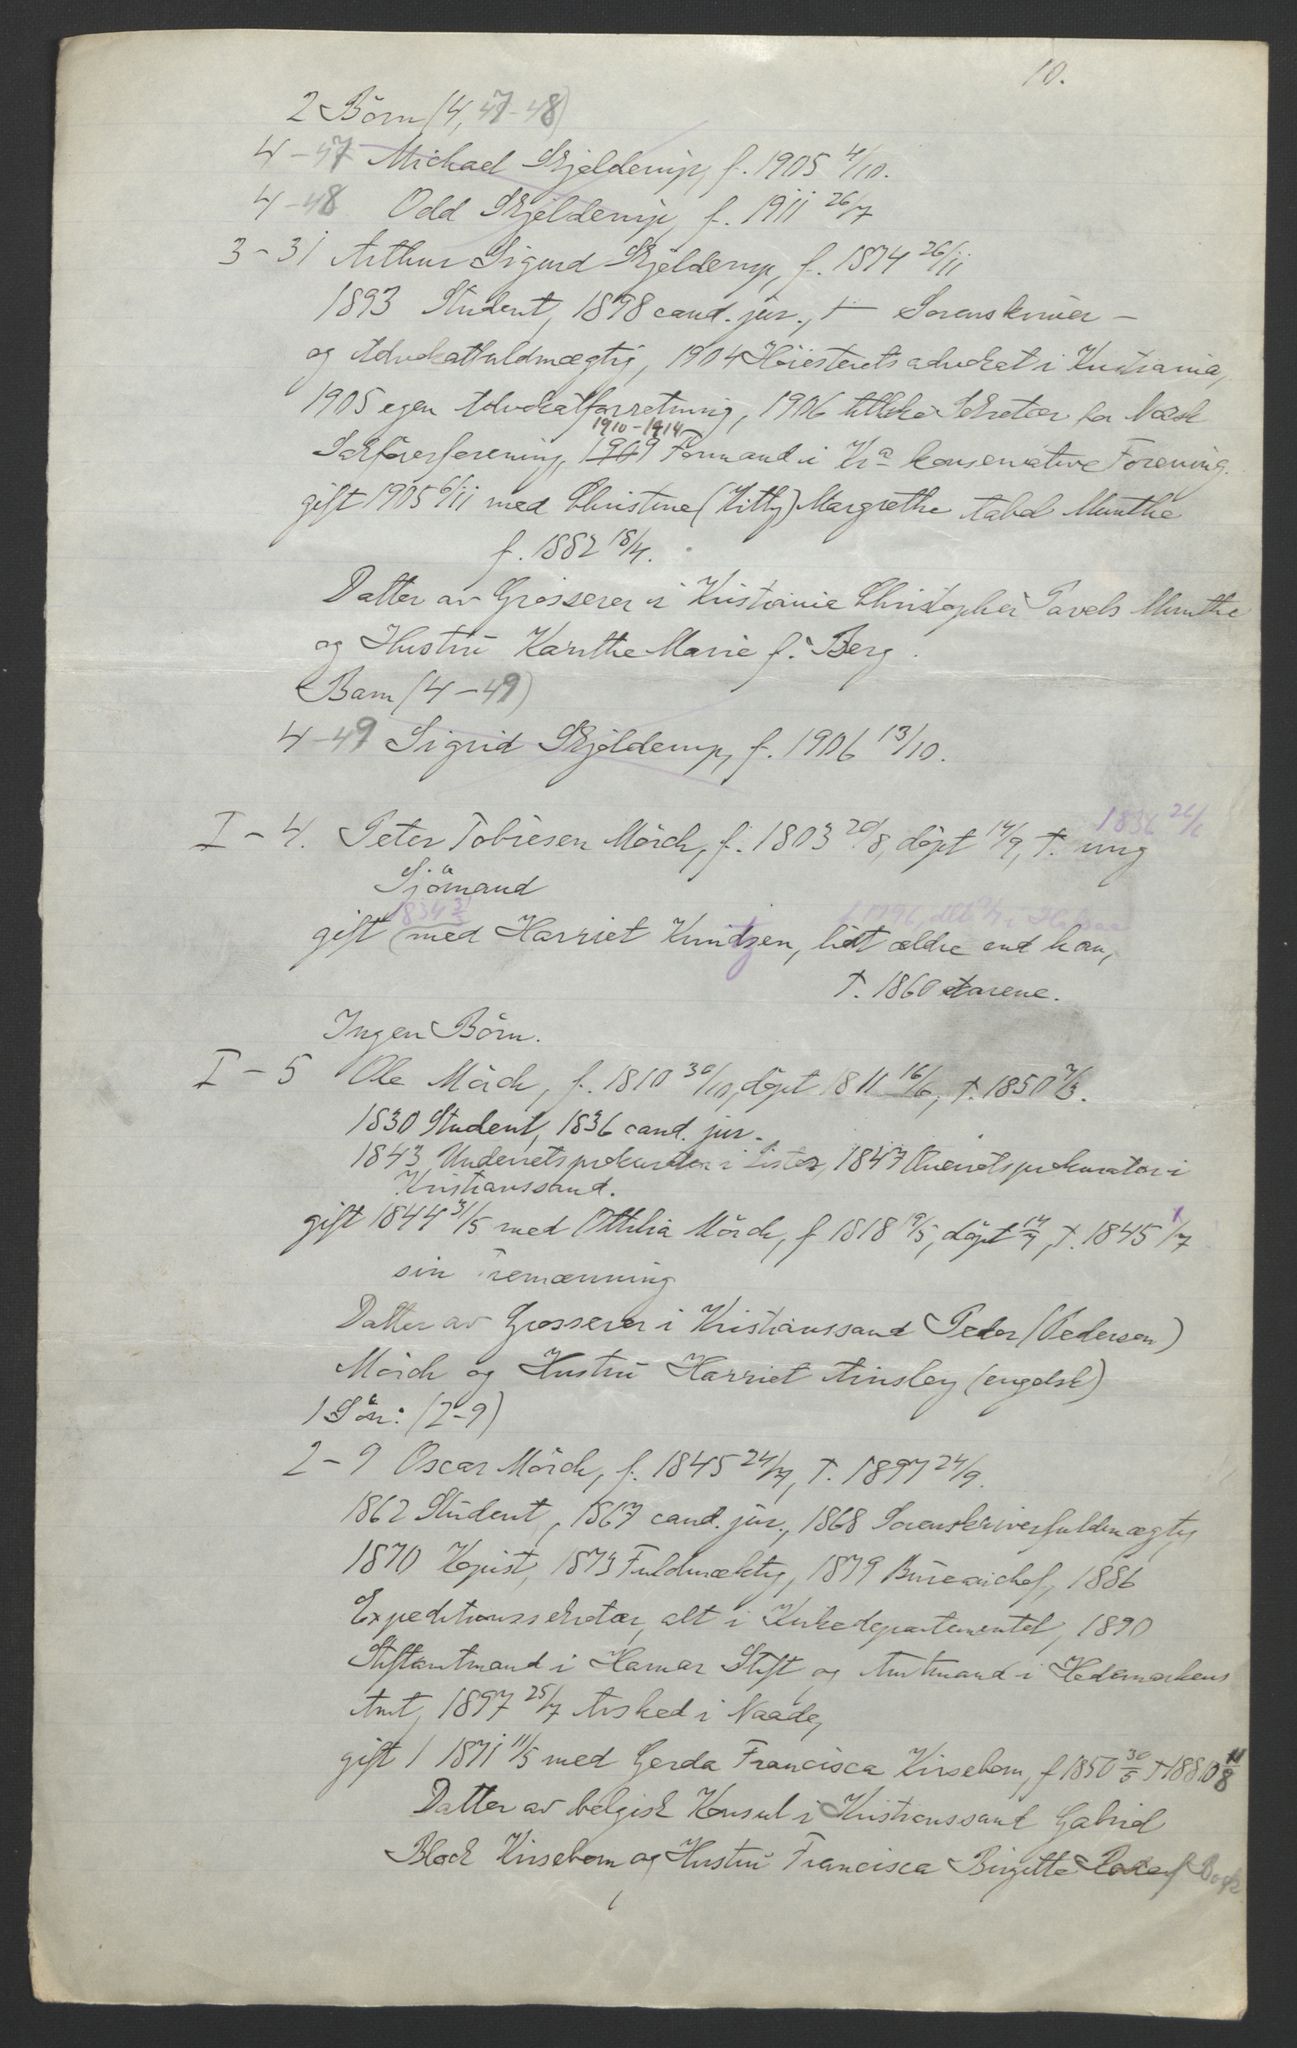 10.
2 Börn (4, 47-48)
4-47 Michael Skjelderup, f. 1905 4/10.
4-48 Odd Skjelderup, f. 1911 26/7
3-31 Arthur Sigurd Skjelderup, f. 1874 26/11
1893 Student, 1898 cand. jur., Sorenskriver-
og Advokatfuldmægtig, 1904 Höiesteretsadvokat i Kristiania,
1905 egen Advokatforretning, 1906 tillike Sekretær for Norsk
1910-1914
Sakförerforening, 1909 Formand i Kra konservative Forening.
gift 1905 6/11 med Christine (Kitty) Margrethe Abel Munthe
f. 1882 18/4.
Datter av Grosserer i Kristiania Christopher Pavels Munthe
og Hustru Karithe Marie f. Berg.
Barn (4-49)
4-49 Sigrid Skjelderup, f. 1906 13/10.
1836
I-4. Peter Tobiesen Mörch, f. 1803 20/8, döpt 14/9, †. ung
Sjömand
1834
gift med Harriet Knudzen, lidt ældre end han,
†. 1860 arene.
Ingen Börn.
I-5 Ole Mörch, f. 1810 30/10, döpt 1811 16/6, †. 1850 7/3.
1830 Student, 1836 cand. jur.
1843 Underretsprokurator i Lister, 1847 Overretsprokurator i
Kristianssand.
gift 1844 31/5 med Ottilia Mörch, f 1818 19/5, döpt 14/7, †. 1845 1/7
sin Tremænning
Datter av Grosserer i Kristianssand Peder (Pedersen)
Mörch og Hustru Harriet Ainsley (engelsk)
1 Sön: (2-9)
2-9 Oscar Mörch, f. 1845 24/4, †. 1897 24/9.
1862 Student, 1867 cand. jur., 1868 Sorenskriverfuldmægtig,
1870 Kopist, 1873 Fuldmæktig, 1879 Bureauchef, 1886
Expeditionssekretær, alt i Kirkedepartementet, 1890
Stiftamtmand i Hamar Stift og Amtmand i Hedemarkens
Amt, 1897 25/7 Avsked i Naade,
gift 1 1871 11/5 med Gerda Francisca Kirsebom, f 1850 30/5 † 1880 11/8
Datter av belgisk Konsul i Kristianssand Gabriel
Block Kirsebom og Hustru Francisca Birgitte f Boye